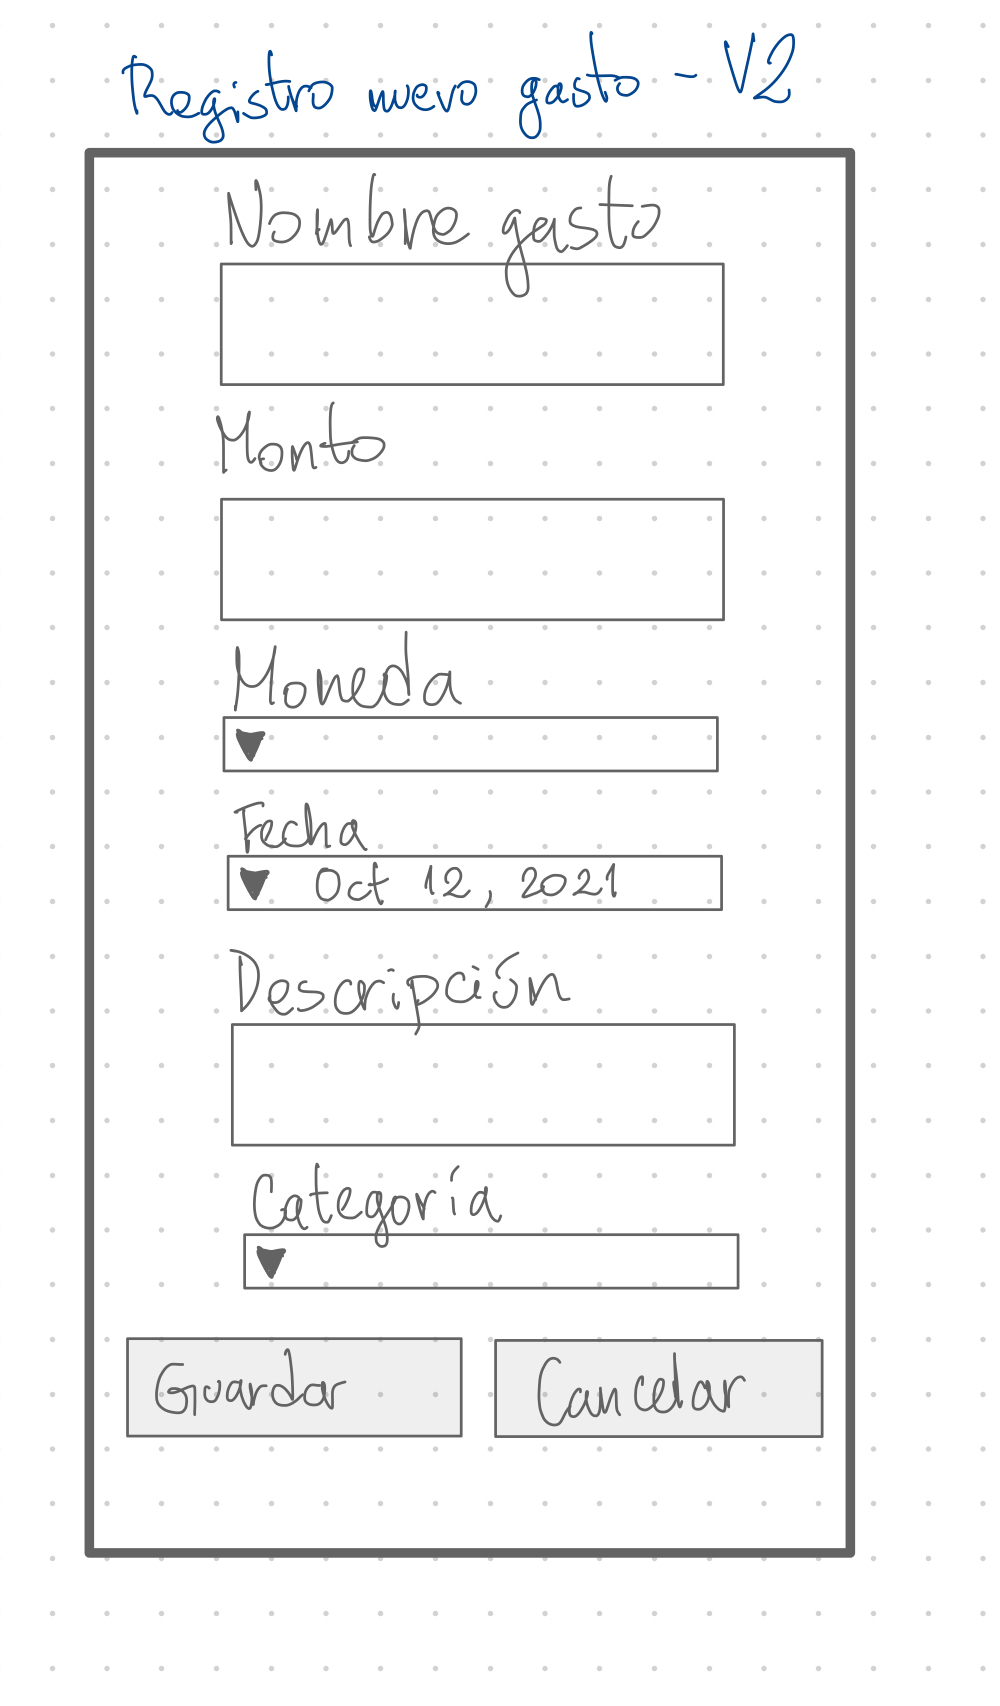 Registro nuevo gasto - V2
Nombre gasto
Monto
Moneda
Fecha
Oct 12, 2021
Descripción
Categoría
Guardar
Cancelar